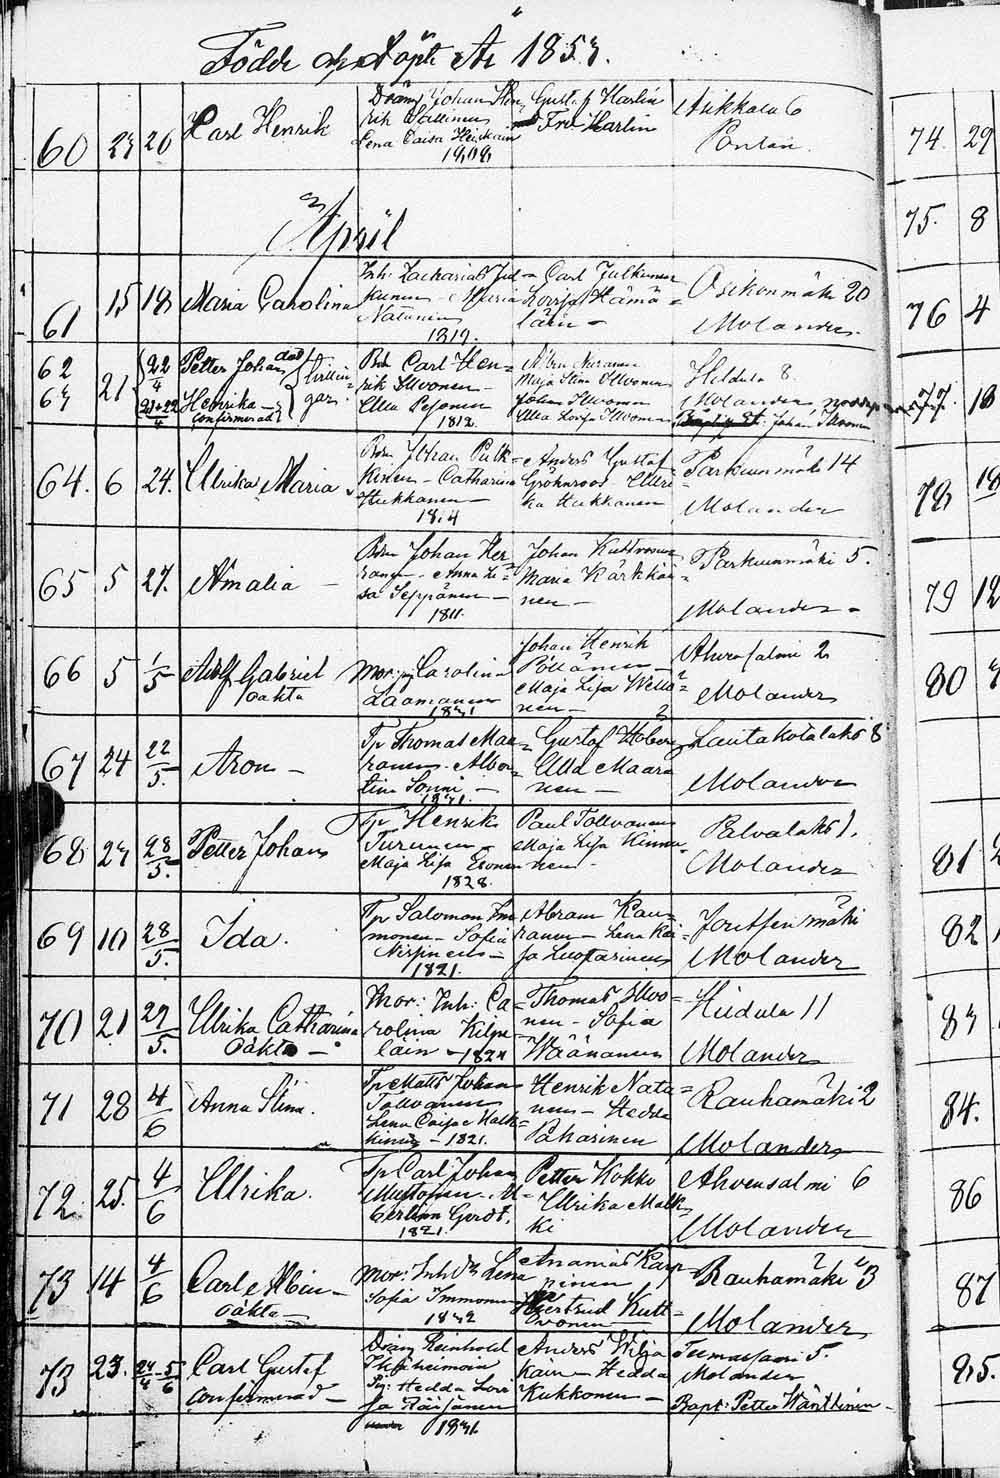 Födde och Döpte År 1853.
60 23 26 Carl Henrik
Dräng Johan Hen
rik Wallinen
Lena Caisa Heiskain
1808
Gustaf Harlin
Fru Harlin
Aikkala 6
Pontan.
April
61 15 18 Maria Carolina
Inh: Zacharias Jul
kunen - Maria
Natunen
1819.
Carl Julkunen
Lovisa Hämä=
läin -
Osikonmäki 20
Molander.
62 22/4 Petter Johan död
63 21 Henrika -
confirmerad
tvillin
gar
Bon Carl Hen=
rik Ilwonen -
Ulla Pesonen
1812.
Maja Stina Ilwonen
Johan Ilwonen
Ulla Lovisa Ilwonen
Hiidula 8.
Molander
Johan Ilwonen
64. 6 24. Ulrika Maria
Bon Johan Pulk=
kinen - Catharina
Hukkanen -
1814
Anders Gustaf
Grönroos - Ulri
ka Hukkanen
Parkunmäki 14
Molander
65 5 27. Amalia -
Bon Johan Her
ranen - Anna Li=
sa Seppänen -
1811.
Johan Kuttvonen
Maria Kärkkäi=
nen -
Parkunmäki 5.
Molander -
66 5 1/5 Adolf Gabriel
oäkta
Mor: Carolina
Laamanen
1831
Johan Henrik
Pöllänen -
Maja Lisa Wello=
nen -
Ahvensalmi 2
Molander
67 24 22/5. Aron -
Tp Thomas Maa=
ranen - Alber=
tina Sonni -
1831.
Gustaf Hoberg
Ulla Maara
nen -
Lautakotalaks 8
Molander
68 23 28/5. Petter Johan
Tp Henrik
Turunen -
Maja Lisa Eronen
1828.
Paul Tollvanen
Maja Lisa Kinnu=
nen -
Palvalaks 1.
Molander
69 10 28/5. Ida.
Tp Salomon Im
monen - Sofia
1821.
Abram Kau=
ranen - Lena Kai=
sa Luostarinen
Joutsenmäki
Molander
70 21 29/5. Ulrika Catharina
Oäkta -
Mor: Inh: Ca=
rolina Kilpe
läin - 1824
Thomas Ilwo=
nen - Sofia
Wäänanen
Hiidula 11
Molander
71 28 4/6 Anna Stina.
Tp Matts Johan
Tollvanen
Lena Caisa Malk=
kinen - 1821.
Henrik Nata=
nen - Hedda
Pakarinen
Rauhamäki 2
Molander
72. 25. 4/6 Ulrika.
Tp Carl Johan
Muttonen - Al=
bertina Gerdt.
1821.
Petter Kokko
Ulrika Malk
ki
Ahvensalmi 6
Molander
73 14 4/6 Carl Allin -
oäkta -
Mor: Inh Dr Lena
Sofia Immonen
1832
Ananias Karp
pinen
Giertrud Kutt=
vonen
Rauhamäki 3
Molander
73 23. 24/4 - 5/6 Carl Gustaf
confirmerad -
Dräng Reinhold
Pig: Hedda Lovi
sa Räisänen
1831.
Anders Wilja
käin - Hedda
Kukkonen -
Tuunaansaari 5
Molander
Bapt: Petter Känttinin -
74. 29
75. 8
76 4
77. 18
78 18
79 12
80
81
82
83
84.
86
87
85.